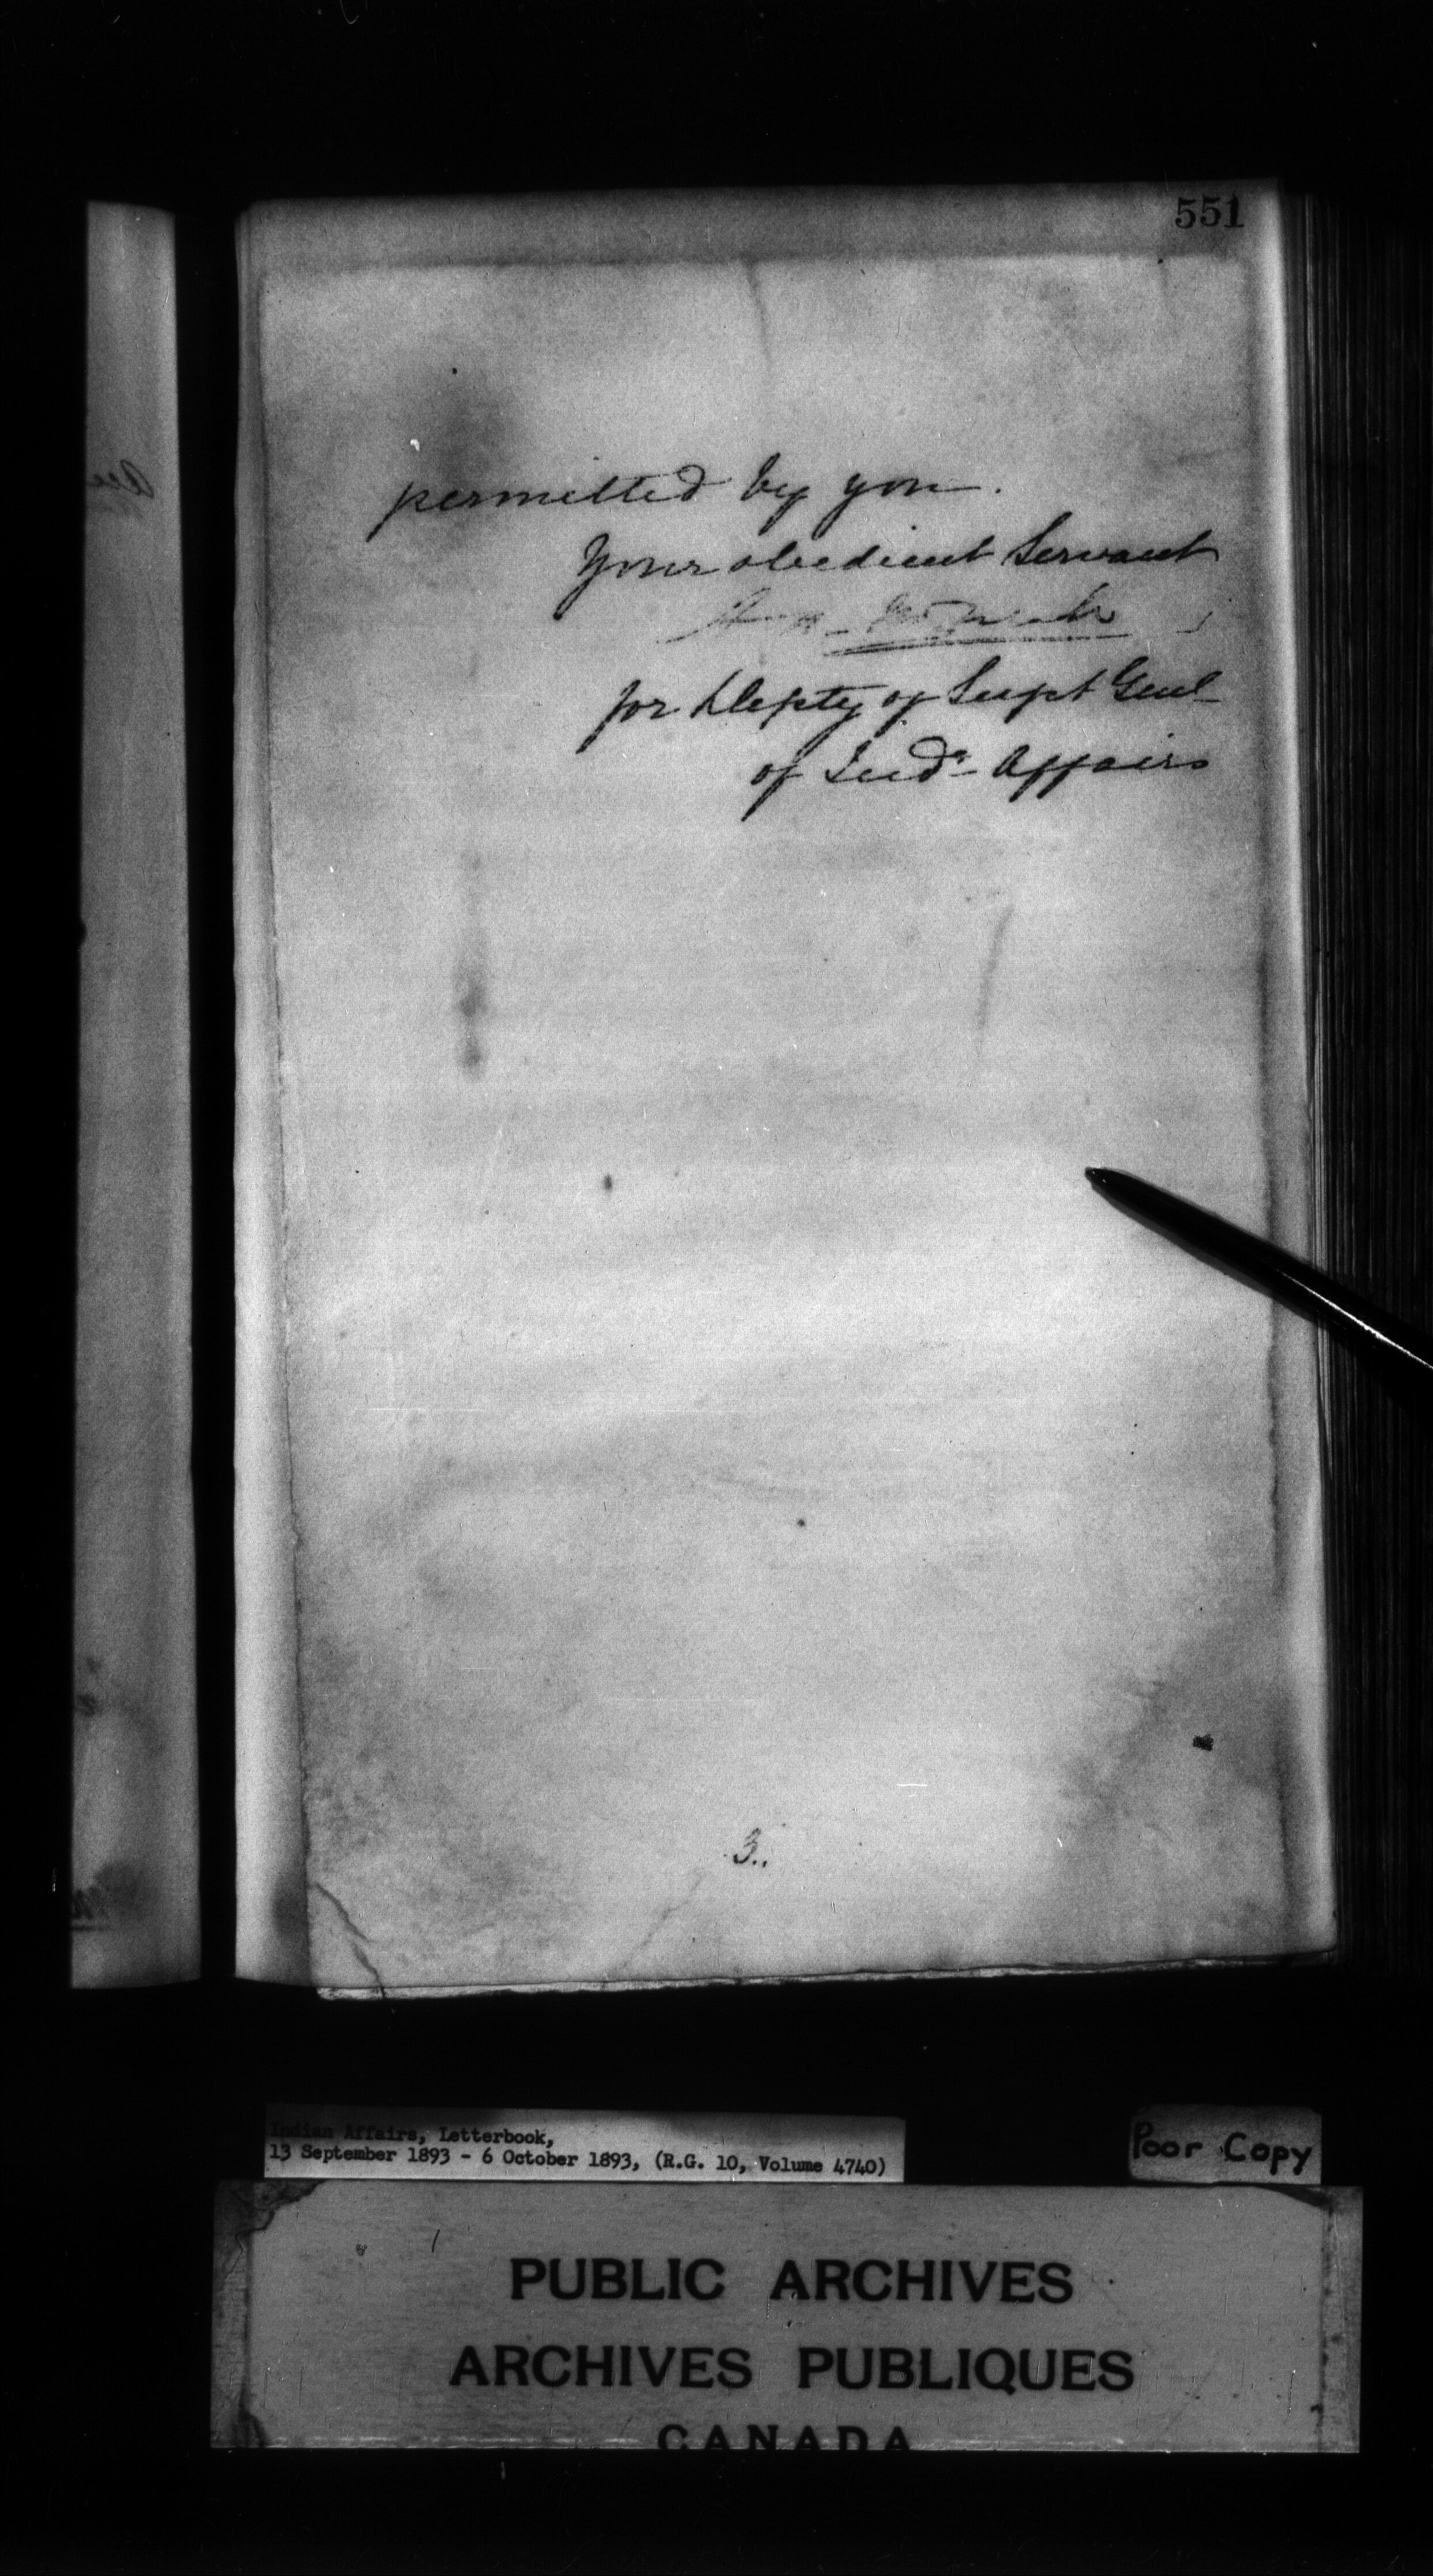 551
permitted by you.
Your obedient Servant
for Depty of Supt Genl
of Indn Affairs
3.
Indian Affairs, Letterbook,
13 September 1893 - 6 October 1893, (R.G. 10, Volume 4740)
Poor Copy
PUBLIC ARCHIVES
ARCHIVES PUBLIQUES
CANADA